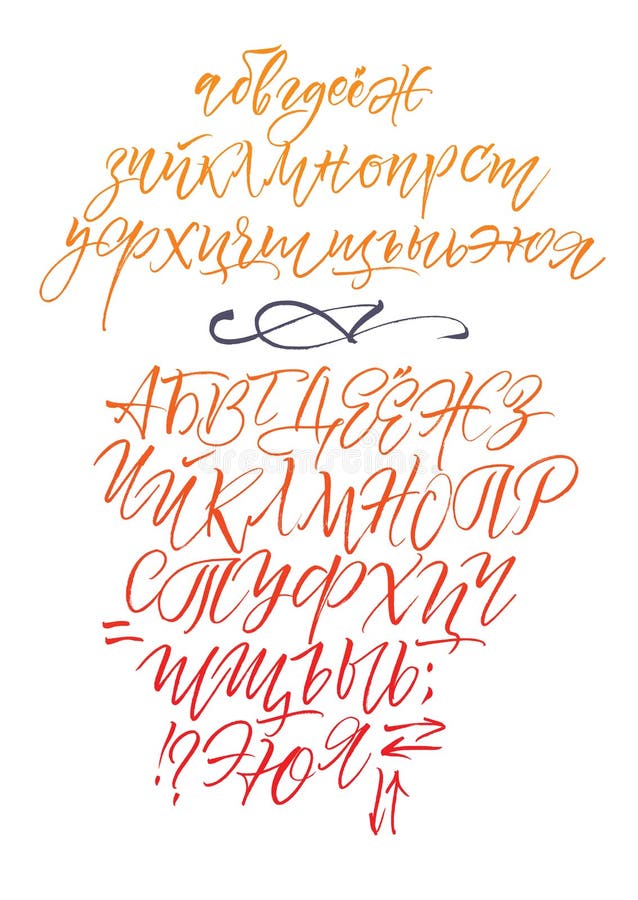 абвгдеёж
зийклмнопрст
уфхцчшщъыьэюя
АБВГДЕЁЖЗ
ИЙКЛМНОПР
СТУФХЦЧ
=
ШЩЪЫЬ;
!?ЭЮЯ
dreamstime